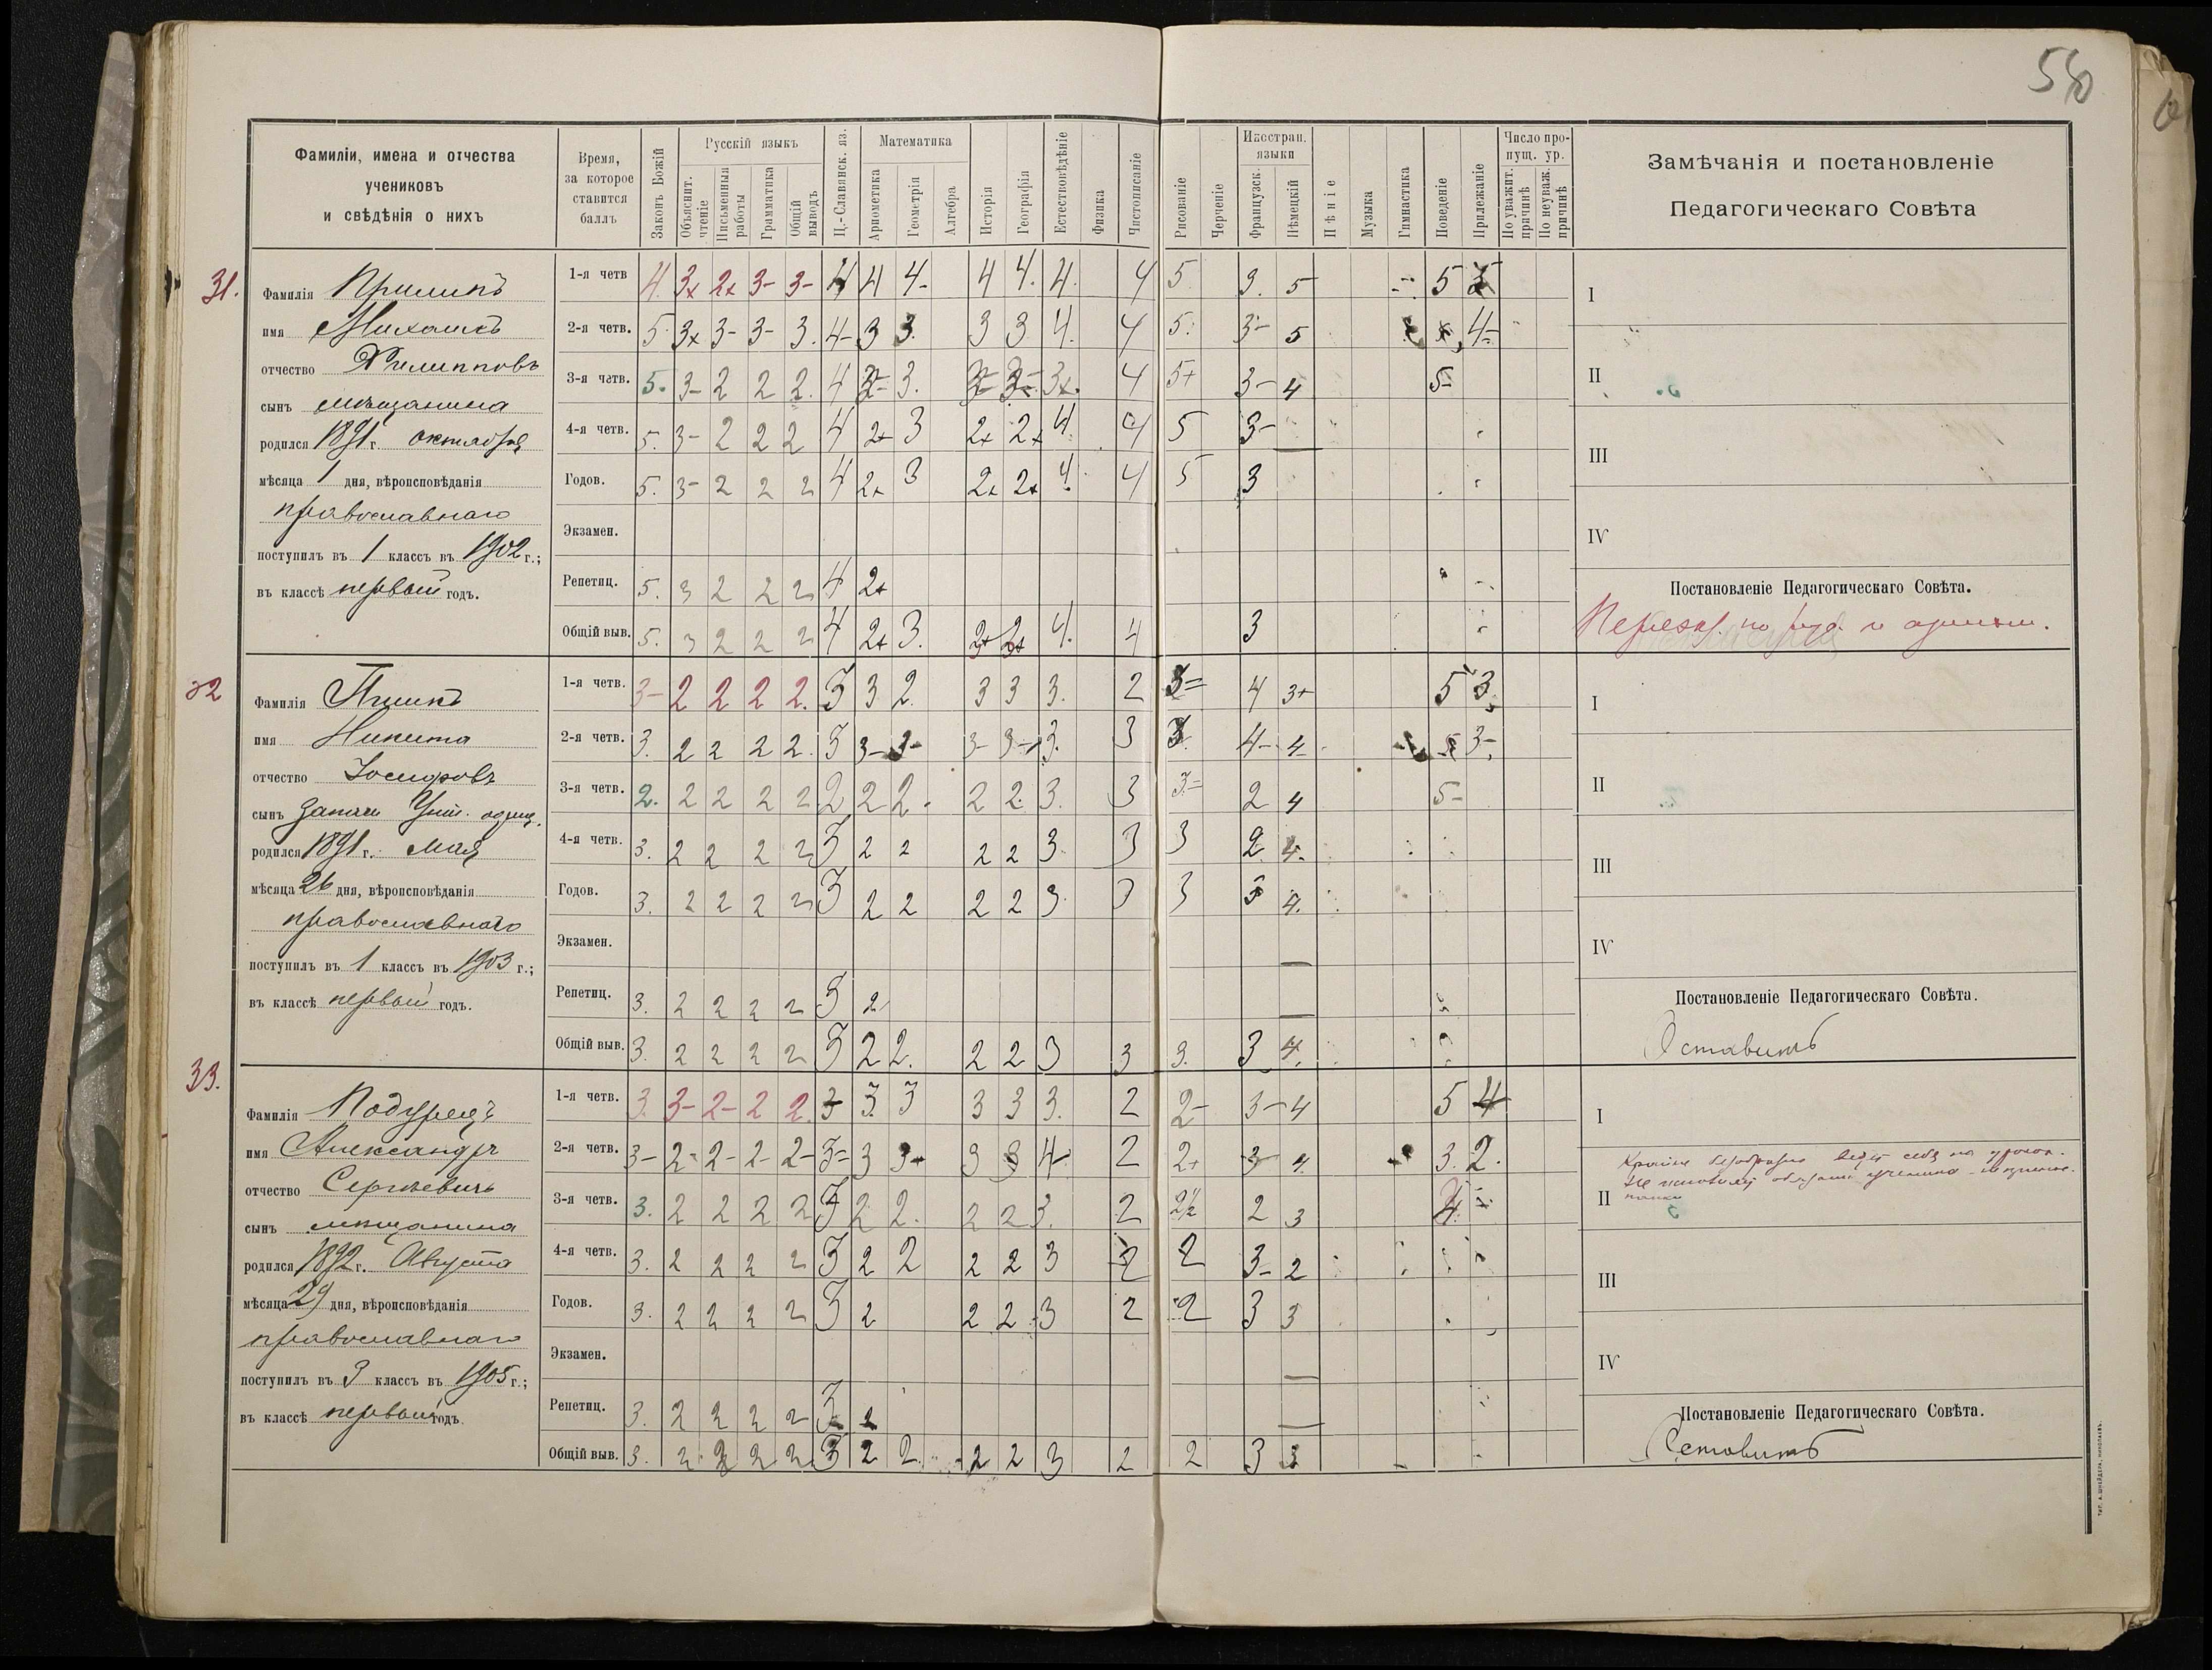 58
Фамиліи, имена и отчества
учениковъ
и свѣдѣнія о нихъ
Время,
за которое
ставится
баллъ
Законъ Божій
Русскій языкъ
Объяснит. чтеніе
Письменныя работы
Грамматика
Общій выводъ
Ц.-Славянск. яз.
Математика
Ариѳметика
Геометрія
Алгебра
Исторія
Географія
Естествовѣдѣніе
Физика
Чистописаніе
Рисованіе
Черченіе
Иностран. языки
Французск.
Нѣмецкій
Пѣніе
Музыка
Гимнастика
Поведеніе
Прилежаніе
Число пропущ. ур.
По уважит. причинѣ
По неуваж. причинѣ
Замѣчанія и постановленіе
Педагогическаго Совѣта
31.
Фамилія
имя Михаилъ
отчество Филипповъ
сынъ мѣщанина
родился 1891 г. октября
мѣсяца 1 дня, вѣроисповѣданія
православнаго
поступилъ въ 1 классъ въ 1902 г.;
въ классѣ первый годъ.
1-я четв 4 3+ 2+ 3- 3- 4 4 4- 4 4. 4. 4 5. 3. 5 5
2-я четв. 5 3+ 3- 3- 3. 4- 3 3. 3 3 4. 4 5. 3- 5 4-
3-я четв. 5. 3- 2 2 2. 4 3. 3+. 4 5+ 3- 4 5-
4-я четв. 5. 3- 2 2 2 4 2+ 3 2+ 2+ 4. 4 5 3-
Годов. 5. 3- 2 2 2 4 2+ 3 2+ 2+ 4. 4 5 3
Экзамен.
Репетиц. 5. 3 2 2 2 4 2+
Общій выв. 5. 3 2 2 2 4 2+ 3. 2+ 2+ 4. 4 3
I
II
III
IV
Постановленіе Педагогическаго Совѣта.
по и
32
Фамилія
имя Никита
отчество Іосифовъ
сынъ
родился 1891 г. Мая
мѣсяца 26 дня, вѣроисповѣданія
православнаго
поступилъ въ 1 классъ въ 1903 г.;
въ классѣ первый годъ.
1-я четв. 3- 2 2 2 2. 3 3 2. 3 3 3. 2 3= 4 3+ 5 3
2-я четв. 3. 2 2 2 2. 3 3- 3- 3- 3- 3. 3 3. 4- 4- 3-
3-я четв. 2. 2 2 2 2 2 2 2. 2 2. 3. 3 3= 2 4 5-
4-я четв. 3. 2 2 2 2 3 2 2 2 2 3 3 3 2. 4.
Годов. 3. 2 2 2 2 3 2 2 2 2 3. 3 3 3 4.
Экзамен.
Репетиц. 3. 2 2 2 2 3 2
Общій выв. 3. 2 2 2 2 3 2 2. 2 2 3 3 3. 3 4.
I
II
III
IV
Постановленіе Педагогическаго Совѣта.
Оставить
33.
Фамилія Подурецъ
имя Александръ
отчество Сергѣевичъ
сынъ мѣщанина
родился 1892 г. Августа
мѣсяца 29 дня, вѣроисповѣданія
православнаго
поступилъ въ 3 классъ въ 1905 г.;
въ классѣ первый годъ.
1-я четв. 3. 3- 2- 2 2. 3 3. 3 3 3 3. 2 2- 3- 4 5 4
2-я четв. 3- 2- 2- 2- 2- 3= 3 3+ 3 3 4- 2 2+ 3- 4. 3. 2.
3-я четв. 3. 2 2 2 2 3 2 2. 2 2 3. 2 2½ 2 3 4
4-я четв. 3. 2 2 2 2 3 2 2 2 2 3 2 2 3- 2
Годов. 3. 2 2 2 2 3 2 2 2 3 2 2 3 3
Экзамен.
Репетиц. 3. 2 2 2 2 3 2
Общій выв. 3. 2 2 2 2 3 2 2. 2 2 3 2 2 3 3
I
Крайне безобразно ведетъ себя на урокахъ.
II
III
IV
Постановленіе Педагогическаго Совѣта.
Оставить
Тип. А. Шнейдера, Николаевъ.